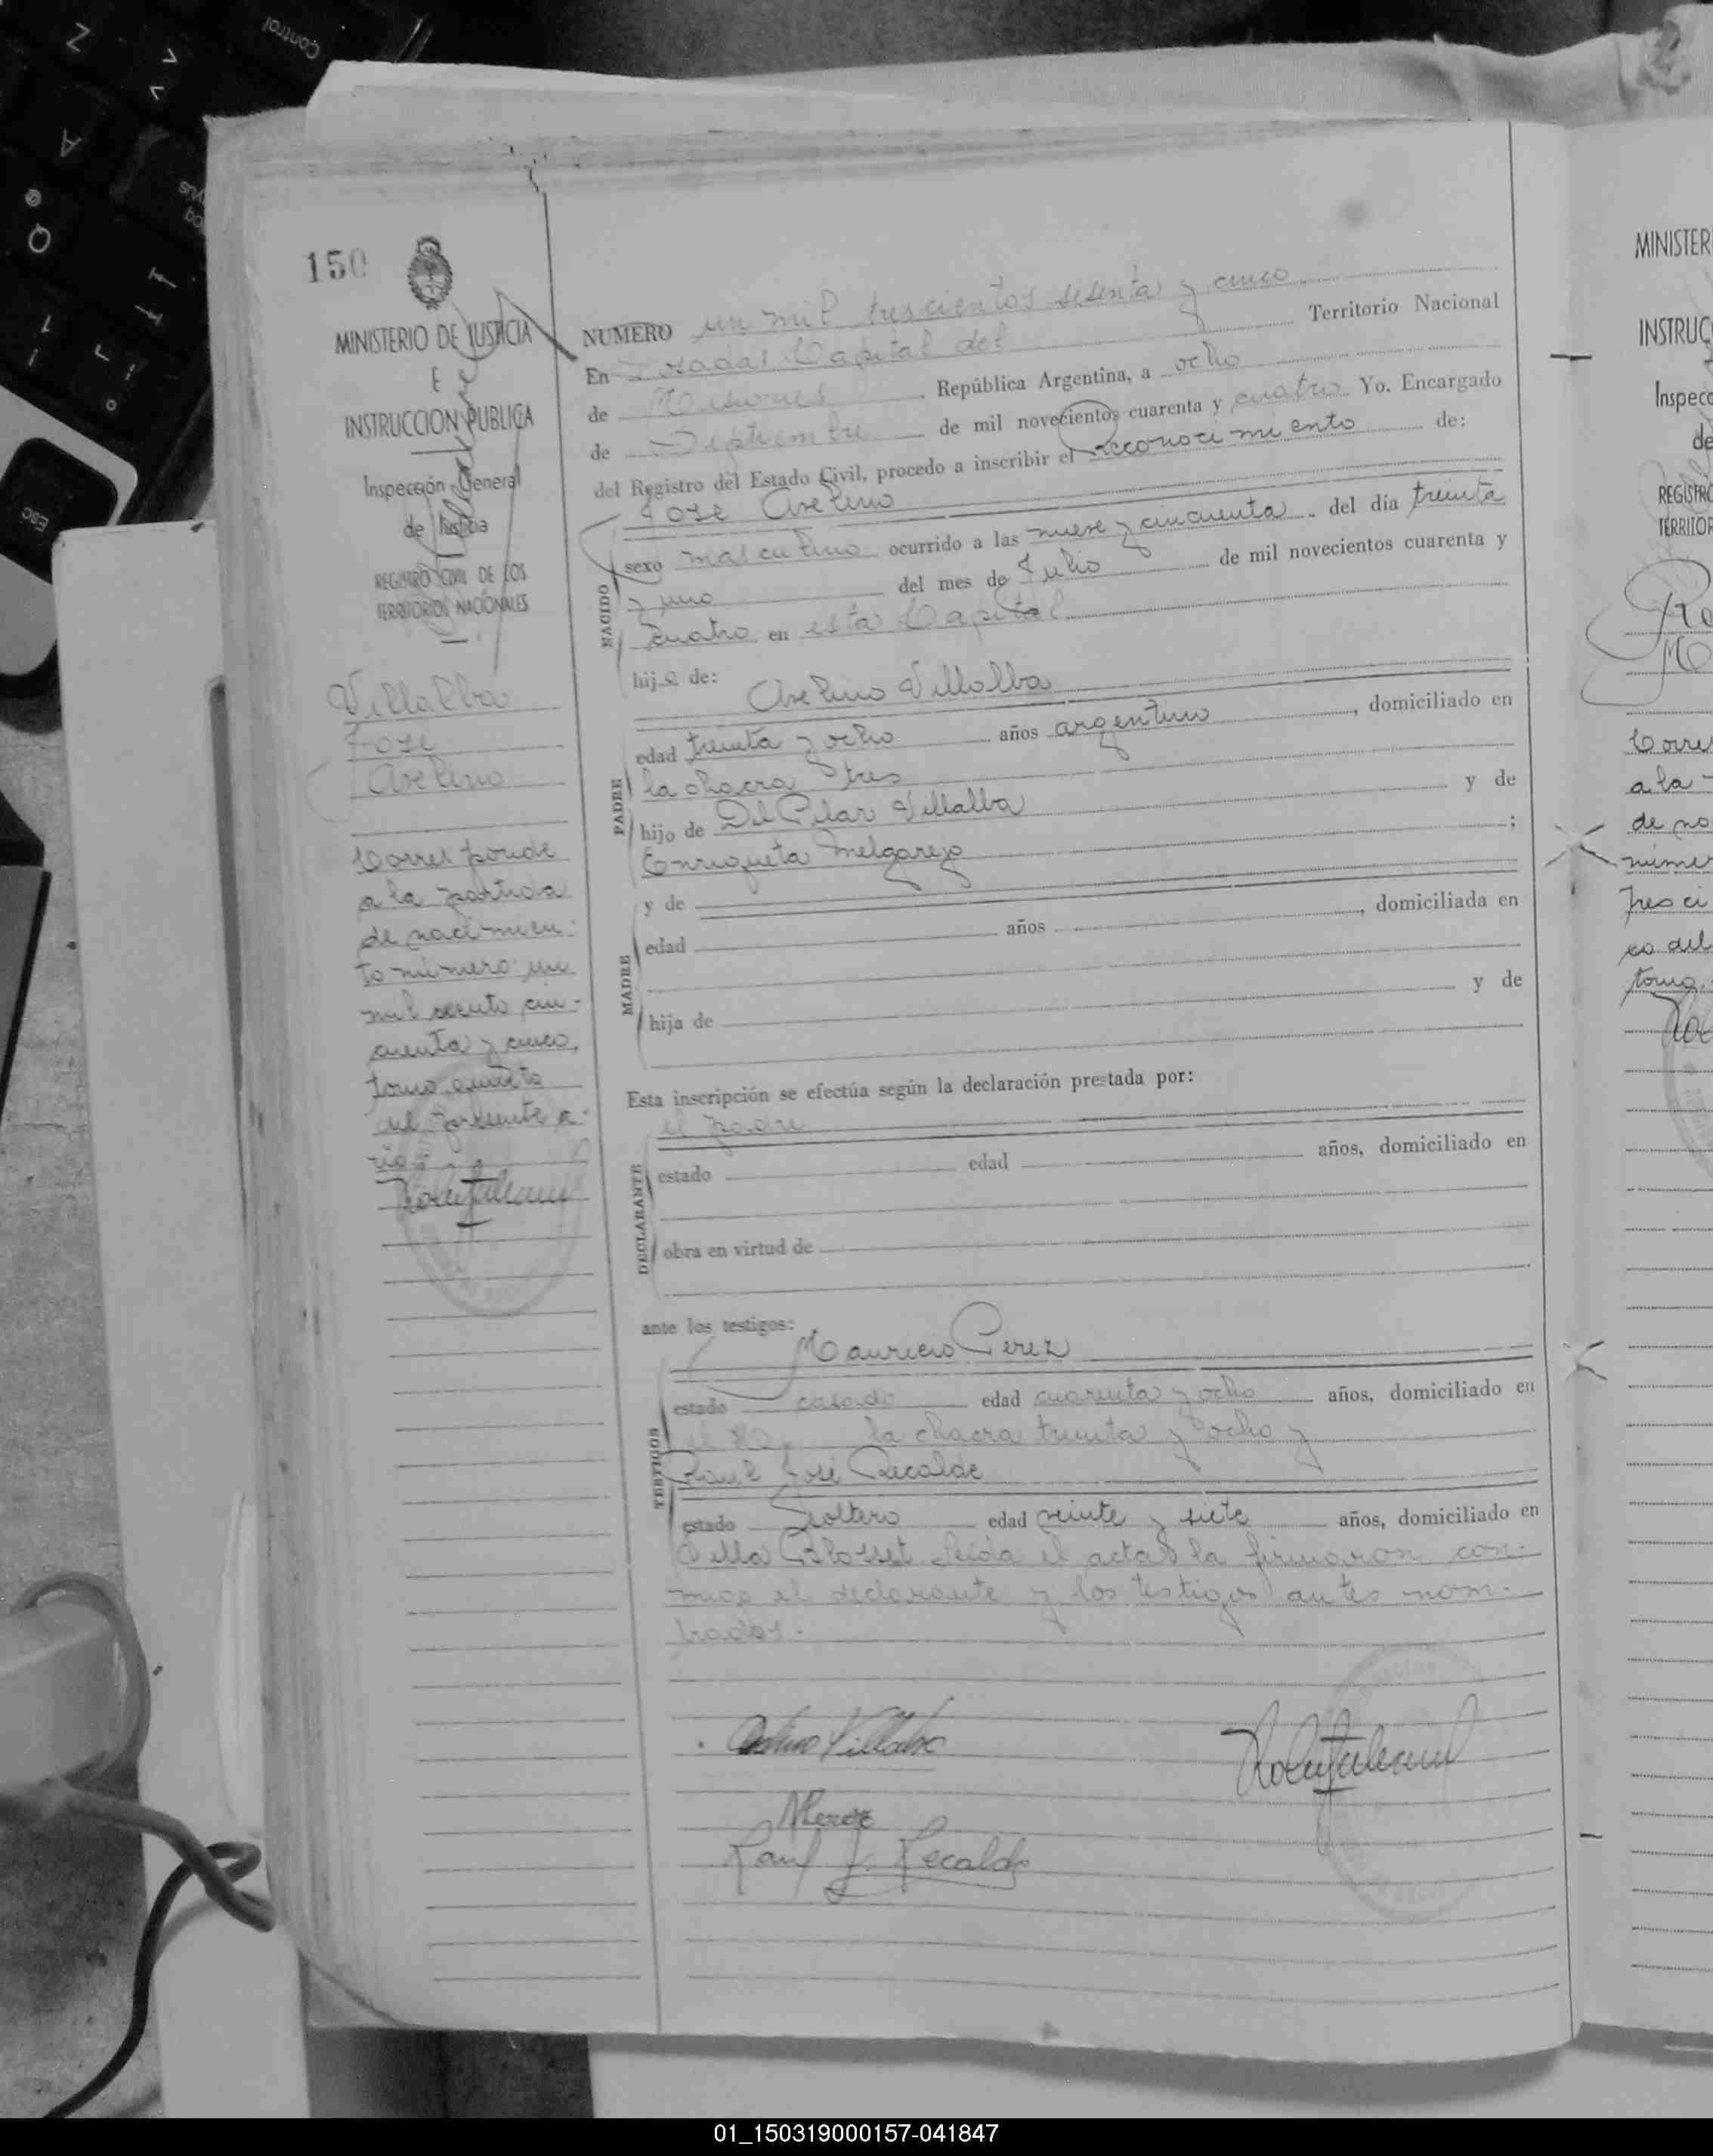 150
MINISTERIO DE JUSTICIA
E
INSTRUCCION PUBLICA
Inspección General
de Justicia
REGISTRO CIVIL DE LOS
TERRITORIOS NACIONALES
Villalba
Jose
Avelino
Corresponde
a la partida
de nacimien-
to número un
mil ciento cin-
cuenta y cinco,
tomo cuarto
del presente a-
ño
NUMERO un mil trescientos sesenta y cinco
En Posadas Capital del Territorio Nacional
de Misiones, República Argentina, a ocho
de Septiembre de mil novecientos cuarenta y cuatro Yo. Encargado
del Registro del Estado Civil, procedo a inscribir el reconocimiento de:
Jose Avelino
NACIDO
sexo masculino ocurrido a las nueve y cincuenta del día treinta
y uno del mes de Julio de mil novecientos cuarenta y
cuatro en esta Capital
hijo de:
Avelino Villalba
PADRE
edad treinta y ocho años argentino, domiciliado en
la chacra tres
hijo de Del Pilar Villalba y de
Enriqueta Melgarejo;
MADRE
y de
edad años, domiciliada en
hija de y de
Esta inscripción se efectúa según la declaración prestada por:
el padre
DECLARANTE
estado edad años, domiciliado en
obra en virtud de
ante los testigos:
Mauricio Perez
TESTIGOS
estado casado edad cuarenta y ocho años, domiciliado en
la chacra treinta y ocho y
Raul José Recalde
estado soltero edad veinte y siete años, domiciliado en
Villa Blosset. Leida el acta la firmaron con-
migo el declarante y los testigos antes nom-
brados.
Avelino Villalba
MPerez
Raul J. Recalde
MINISTER
INSTRUC
Inspecc
de
REGISTRO
TERRITOR
Corre
a la
de na
númer
tresci
co del
tomo
Control
Esc
Z
A
Q
@
01_150319000157-041847